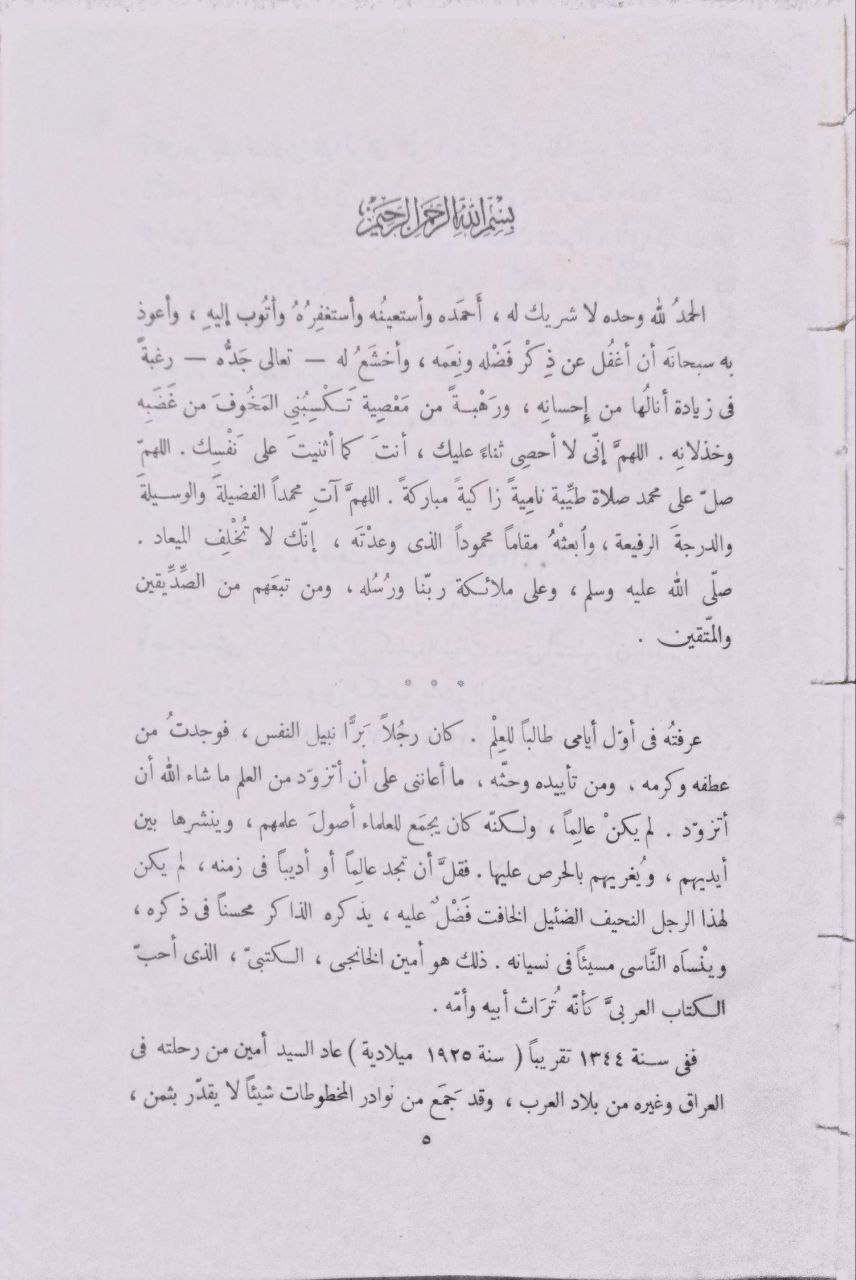 بِسْمِ اللهِ الرَّحْمَنِ الرَّحِيمِ
الحمدُ لله وحده لا شريك له ، أَحمَده وأستعينُه وأستغفِرُهُ وأتُوب إليهِ ، وأعوذ
به سبحانَه أن أغفُل عن ذِكْر فَضْله ونِعَمه ، وأخشَعُ له — تعالى جَدُّه — رغبةً
فى زيادة أنالُها من إِحسانِه ، ورَهْبـةً من مَعْصِية تَـكْسِبُنِى المَخُوفَ من غَضَبِه
وخذلانِه . اللهمَّ إنّى لا أحصِى ثناءً عليك ، أنتَ كما أثنيتَ على نَفْسِك . اللهمّ
صلّ على محمد صلاة طَيِّبة نامِيةً زاكيةً مباركةً . اللهمَّ آتِ محمداً الفضيلةَ والوسـيلةَ
والدرجةَ الرفيعة ، وٱبعثْهُ مقاماً محموداً الذى وعدْتَه ، إنّك لا تُخْلِف الميعاد .
صلّى الله عليه وسلم ، وعلى ملائـكة ربّنا ورُسُله ، ومن تبعَهم من الصِّدِّيقين
والمتّقين .
* * *
عرفتُه فى أوّل أيامى طالباً للعِلْم . كان رجُلاً بَرًّا نبيل النفس ، فوجدتُ من
عطفه وكرمه ، ومن تأييده وحثّه ، ما أعاننى على أن أتزوّد من العلم ما شاء الله أن
أتزوّد . لم يكنْ عالِماً ، ولـكنّه كان يجمَع للعلماء أصولَ علمهم ، وينشرها بين
أيديهم ، ويُغريهم بالحرص عليها . فقلَّ أن تجد عالِماً أو أديباً فى زمنه ، لم يكن
لهذا الرجل النحيف الضئيل الخافت فَضْلٌ عليه ، يذكره الذاكر محسناً فى ذكره ،
وينْساَه النَّاسى مسيئاً فى نسيانه . ذلك هو أمين الخانجى ، الـكتبىّ ، الذى أحبّ
الـكتاب العربىَّ كأنّه تُرَاث أبيه وأمّه .
ففى سـنة ١٣٤٤ تقريباً ( سنة ١٩٢٥ ميلادية ) عاد السيد أمين من رحلته فى
العراق وغيره من بلاد العرب ، وقد جَمَع من نوادر المخطوطات شيئاً لا يقدّر بثمن ،
٥